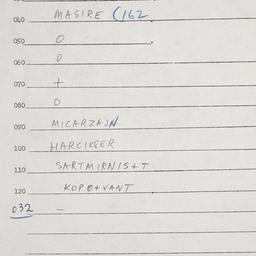 040 MASIRE (162
050 0
060 0
070 +
080 0
090 MICARZAIN
100 HARCIKGER
110 SARTMIRNIS+T
120 KOPO+VANT
032 –